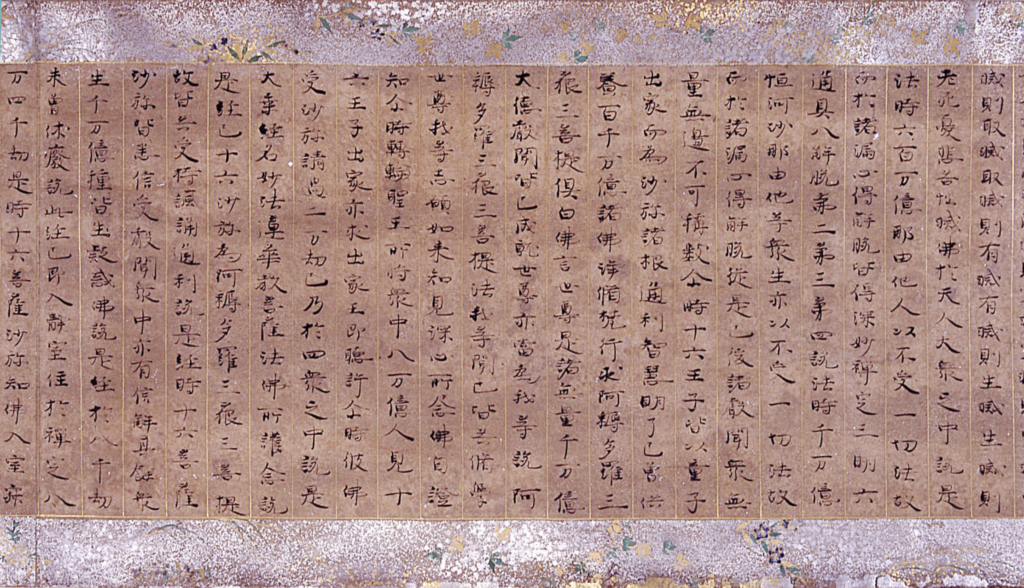 滅則取滅取滅則有滅有滅則生滅生滅則
老死憂悲苦惱滅佛於天人大衆之中說是
法時六百万億那由他人以不受一切法故
而於諸漏心得解脫皆得深妙禪定三明六
通具八解脫第二第三第四說法時千万億
恒河沙那由他等衆生亦以不受一切法故
而於諸漏心得解脫從是已後諸聲聞衆無
量無邊不可稱數尒時十六王子皆以童子
出家而為沙弥諸根通利智慧明了已曾供
養百千万億諸佛淨脩梵行求阿耨多羅三
藐三菩提俱白佛言世尊是諸無量千万億
大德聲聞皆已成就世尊亦當為我等說阿
耨多羅三藐三菩提法我等聞已皆共脩學
世尊我等志願如来知見深心所念佛自證
知尒時轉輪聖王所將衆中八万億人見十
六王子出家亦求出家王即聽許尒時彼佛
受沙弥請過二万劫已乃於四衆之中說是
大乗經名妙法蓮華教菩薩法佛所護念說
是經已十六沙弥為阿耨多羅三藐三菩提
故皆共受持諷誦通利說是經時十六菩薩
沙弥皆悉信受聲聞衆中亦有信解其餘衆
生千万億種皆生疑惑佛說是經於八千劫
未曾休廢說此經已即入靜室住於禪定八
万四千劫是時十六菩薩沙弥知佛入室寂